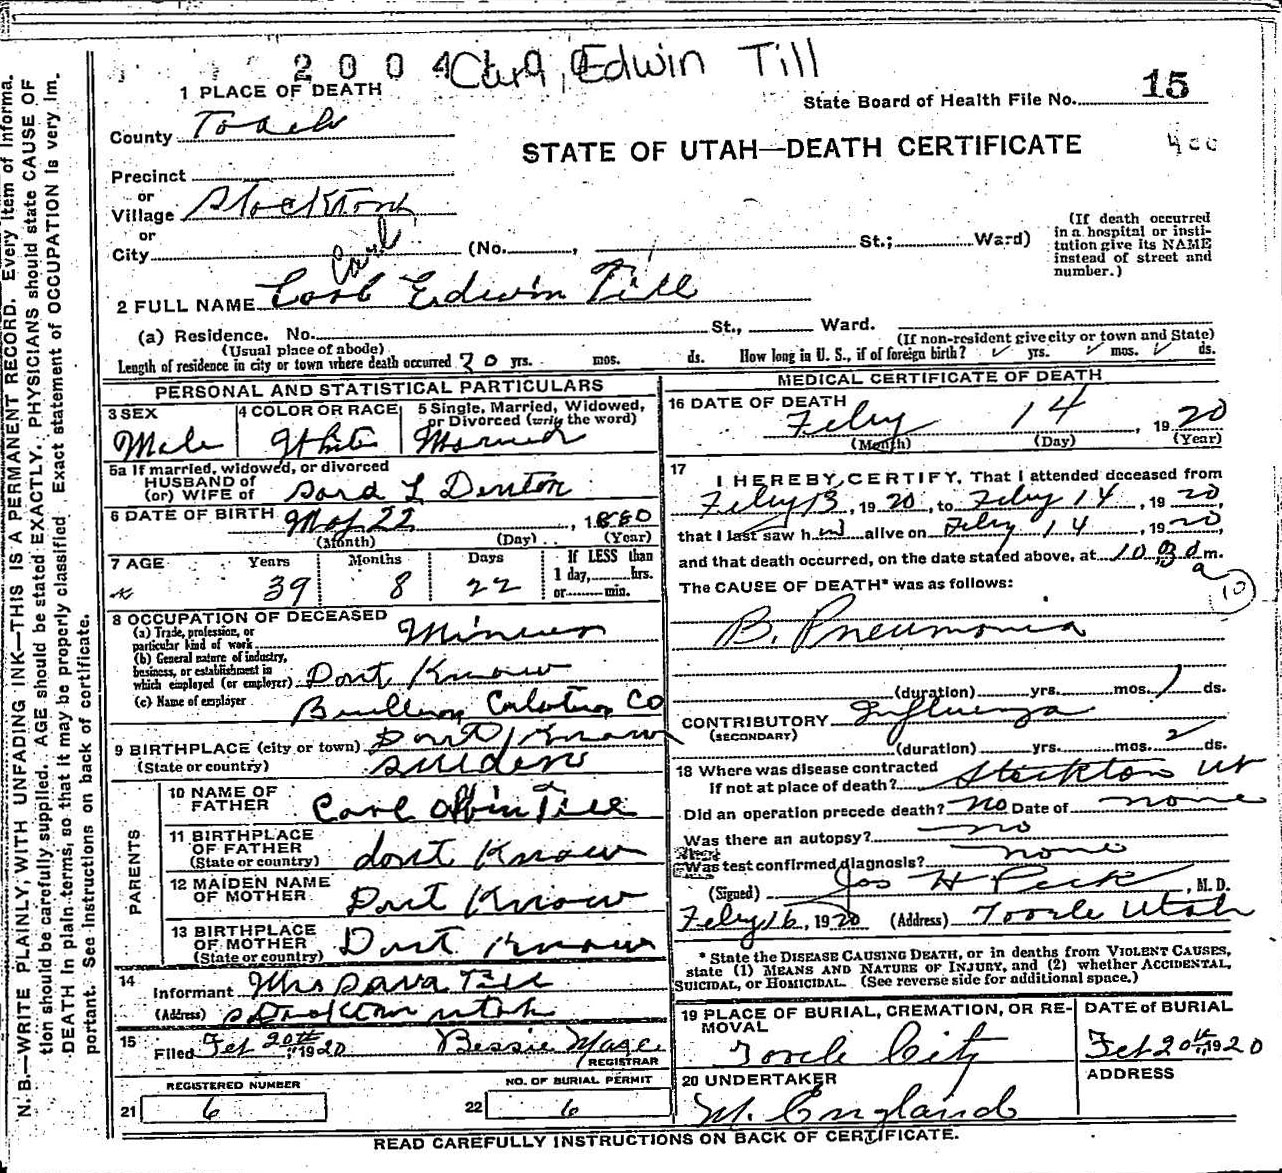 2 0 0 4 Edwin Till
1 PLACE OF DEATH
State Board of Health File No. 15
County Tooele
STATE OF UTAH—DEATH CERTIFICATE 400
Precinct
or
Village Stockton
or
City (No. , St.; Ward)
(If death occurred in a hospital or insti-
tution give its NAME
instead of street and
number.)
Carl
2 FULL NAME Carl Edwin Till
(a) Residence. No. St., Ward.
(Usual place of abode)
(If non-resident give city or town and State)
Length of residence in city or town where death occurred 20 yrs. mos. ds. How long in U. S., if of foreign birth? yrs. mos. ds.
PERSONAL AND STATISTICAL PARTICULARS
3 SEX
Male
4 COLOR OR RACE
White
5 Single, Married, Widowed,
or Divorced (write the word)
Married
5a If married, widowed, or divorced
HUSBAND of
(or) WIFE of Sara L Denton
6 DATE OF BIRTH May 22, 1880
(Month) (Day) (Year)
7 AGE Years Months Days
39 8 22
If LESS than
1 day, hrs.
or min.
8 OCCUPATION OF DECEASED
(a) Trade, profession, or
particular kind of work Miner
(b) General nature of industry,
business, or establishment in
which employed (or employer) Dont Know
(c) Name of employer Bullion Co
9 BIRTHPLACE (city or town) Dont Know
(State or country) Suiden
PARENTS
10 NAME OF
FATHER Carl Till
11 BIRTHPLACE
OF FATHER
(State or country) dont Know
12 MAIDEN NAME
OF MOTHER Dont Know
13 BIRTHPLACE
OF MOTHER
(State or country) Dont Know
14
Informant Mrs Sara Till
(Address) Stockton Utah
15
Filed Feb 20th 1920 Bessie
REGISTRAR
REGISTERED NUMBER
21 6
NO. OF BURIAL PERMIT
22 6
MEDICAL CERTIFICATE OF DEATH
16 DATE OF DEATH
Feby 14, 1920
(Month) (Day) (Year)
17
I HEREBY CERTIFY, That I attended deceased from
Feby 13, 1920, to Feby 14, 1920,
that I last saw him alive on Feby 14, 1920,
and that death occurred, on the date stated above, at 10 m.
The CAUSE OF DEATH* was as follows:
10
B. Pneumonia
(duration) yrs. mos. 1 ds.
CONTRIBUTORY Influenza
(SECONDARY)
(duration) yrs. mos. 2 ds.
18 Where was disease contracted
If not at place of death? Stockton Ut
Did an operation precede death? No Date of none
Was there an autopsy? no
Was test confirmed diagnosis? none
(Signed) Jos H Peck, M. D.
Feby 16, 1920 (Address) Tooele Utah
* State the DISEASE CAUSING DEATH, or in deaths from VIOLENT CAUSES,
state (1) MEANS AND NATURE OF INJURY, and (2) whether ACCIDENTAL,
SUICIDAL, or HOMICIDAL. (See reverse side for additional space.)
19 PLACE OF BURIAL, CREMATION, OR RE-
MOVAL
Tooele City
DATE of BURIAL
Feb 20th 1920
20 UNDERTAKER
M. England
ADDRESS
READ CAREFULLY INSTRUCTIONS ON BACK OF CERTIFICATE.
N. B.—WRITE PLAINLY, WITH UNFADING INK—THIS IS A PERMANENT RECORD. Every item of informa-
tion should be carefully supplied. AGE should be stated EXACTLY. PHYSICIANS should state CAUSE OF
DEATH in plain terms, so that it may be properly classified. Exact statement of OCCUPATION is very im-
portant. See instructions on back of certificate.